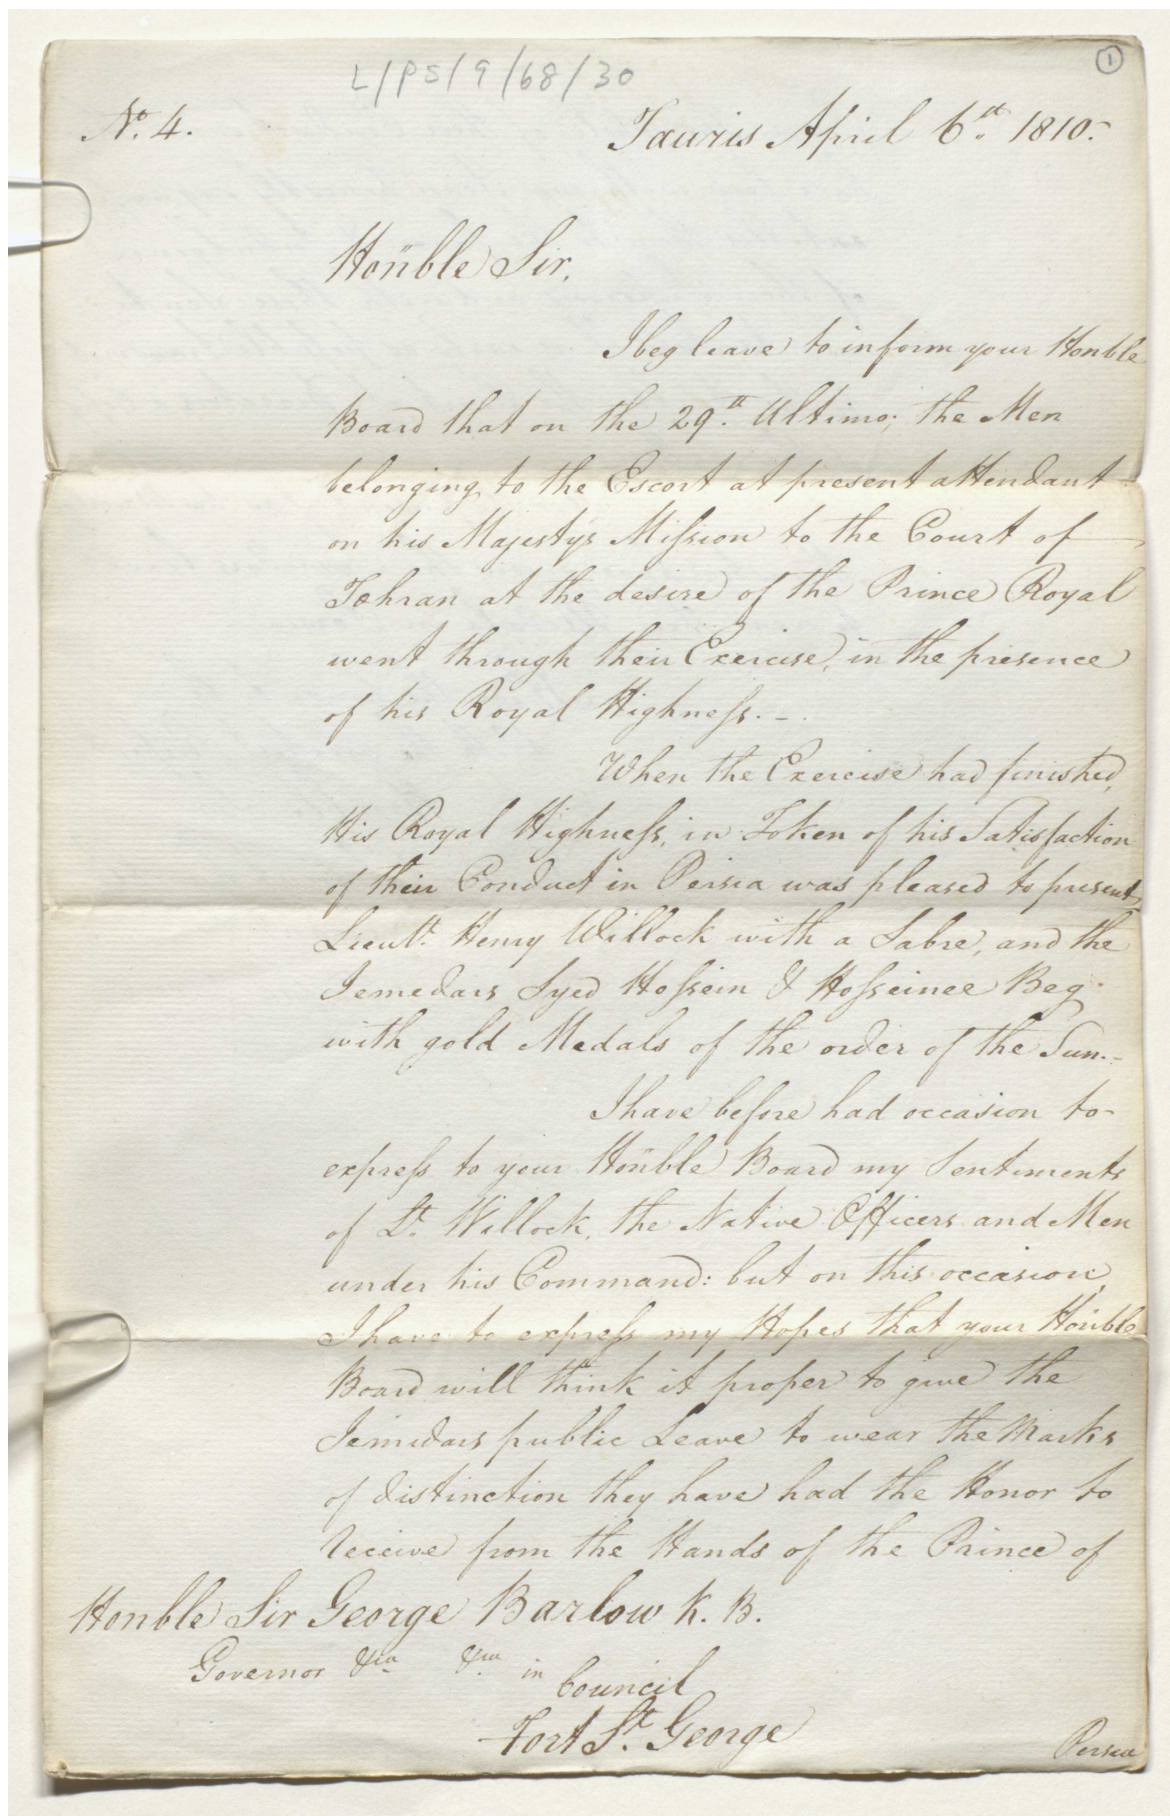 L/PS/9/68/30
1
No. 4.
Tauris April 6th. 1810.
Honble Sir,
I beg leave to inform your Honble
Board that on the 29th. Ultimo; the Men
belonging to the Escort at present attendant
on his Majestys Mission to the Court of
Tehran at the desire of the Prince Royal
went through their Exercise, in the presence
of his Royal Highness. -
When the Exercise had finished,
His Royal Highness, in Token of his Satisfaction
of their Conduct in Persia was pleased to present
Lieut. Henry Willock with a Sabre, and the
Jemedars Syed Hossein & Hosseinee Beg
with gold Medals of the order of the Sun. -
I have before had occasion to
express to your Honble Board my Sentiments
of Lt. Willock, the Native Officers and Men
under his Command: but on this occasion,
I have to express my Hopes that your Honble
Board will think it proper to give the
Jemidars public Leave to wear the Marks
of distinction they have had the Honor to
receive from the Hands of the Prince of
Honble Sir George Barlow K. B.
Governor &ca &ca in Council
Fort St. George
Persia